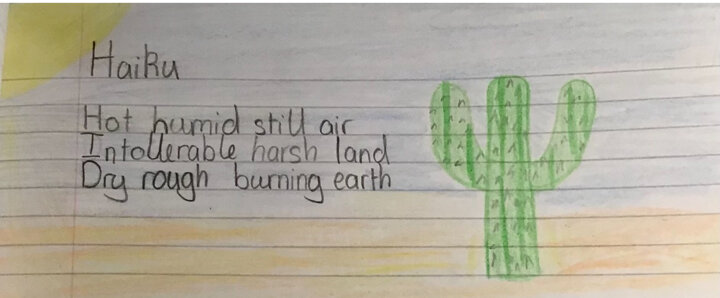 Haiku
Hot humid still air
Intollerable harsh land
Dry rough burning earth